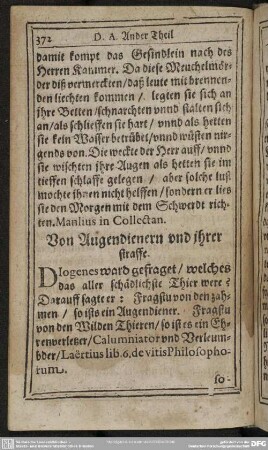 372 D. A. Ander Theil
damit kompt das Gesindlein nach des
Herren Kammer. Da diese Meuchelmör-
der diß vermerckten/daß leute mit brennen-
den liechten kommen/ legten sie sich an
ihre Betten/schnarchten vnnd stalten sich
an/als schlieffen sie hart/ vnnd als hetten
sie kein Wasser betrübet/vnnd wüsten nir-
gends von. Die weckte der Herr auff/vnnd
sie wischten jhre Augen als hetten sie im
tieffen schlaffe gelegen/ aber solche lust
mochte ihnen nicht helffen/sondern er lies
sie den Morgen mit dem Schwerdt rich-
ten. Manlius in Collectan.
Von Augendienern vnd jhrer
straffe.
DIogenes ward gefraget/ welches
das aller schädlichste Thier were?
Darauff sagt er: Fragstu von den zäh-
men/ so ists ein Augendiener. Fragstu
von den Wilden Thieren/so ist es ein Eh-
renverletzer/Calumniator vnd Verleum-
bder/Laërtius lib. 6. de vitis Philosopho-
rum.
so-